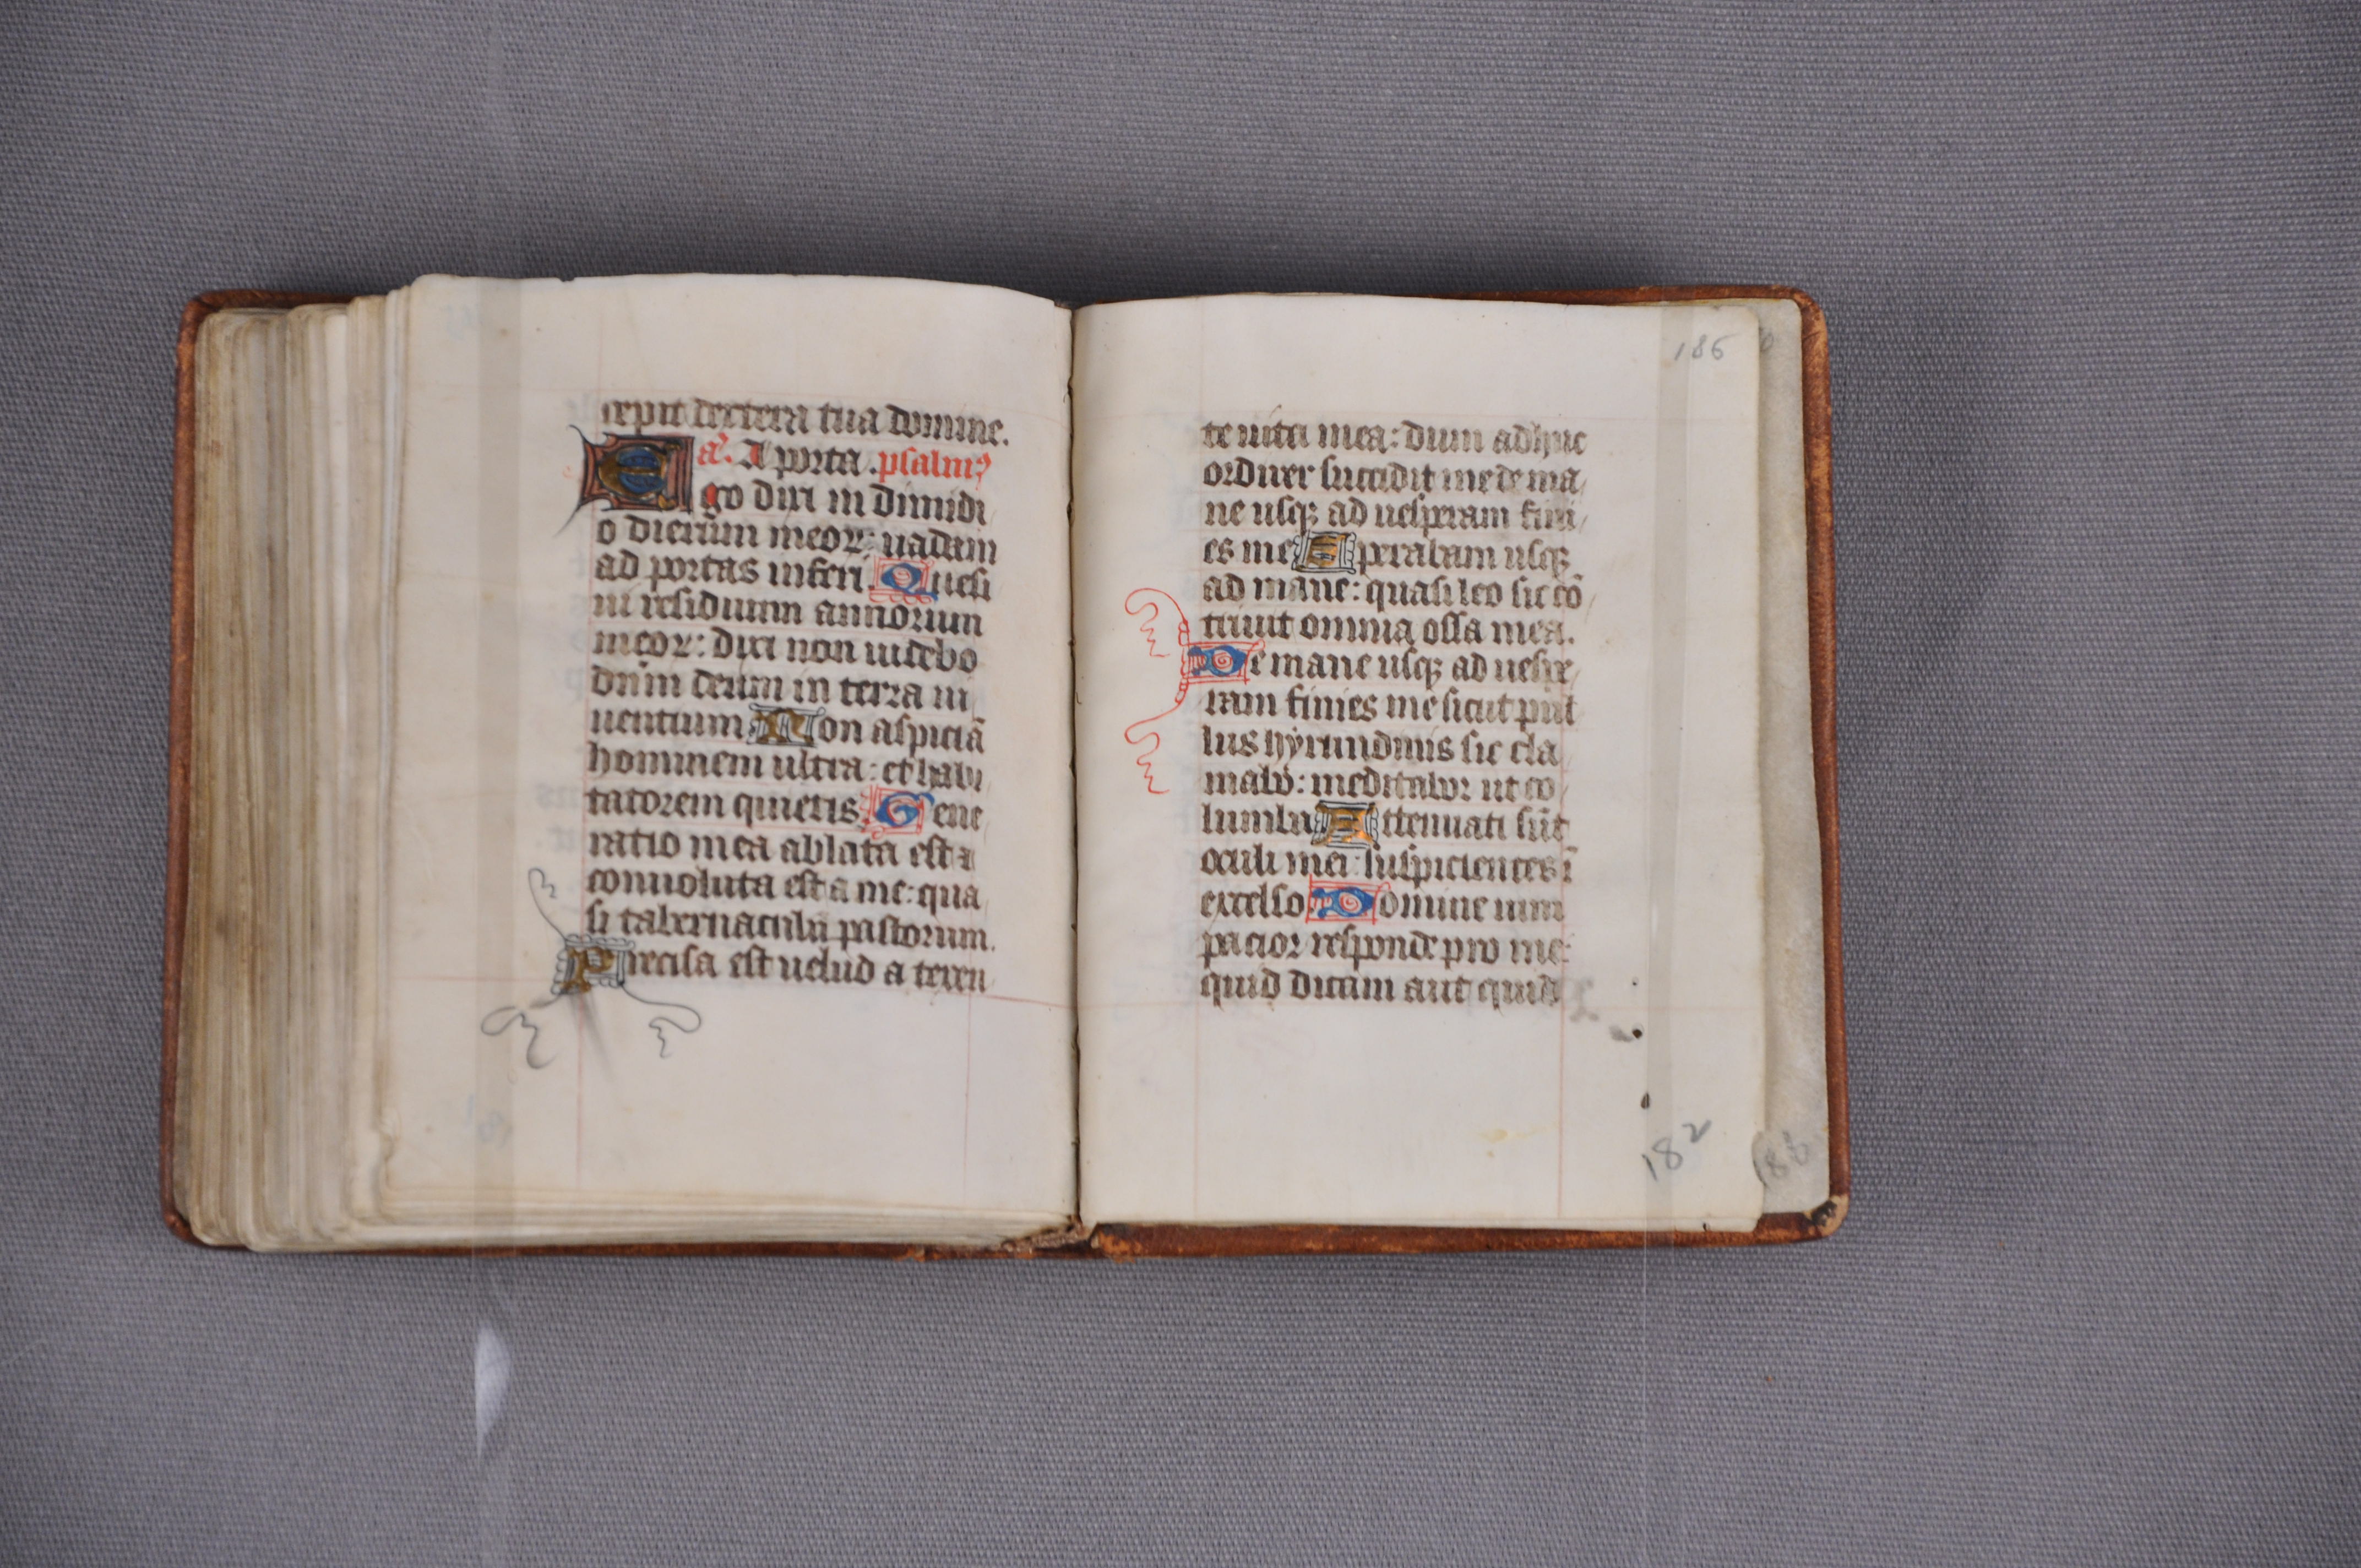 cepit dextera tua domine.
a̕. A porta. psalmꝰ
Ego dixi in dimidi
o dierum meoꝝ: uadam
ad portas inferi. Quesi
ui residuum annorum
meoꝝ: dixi non uidebo
dñm deum in terra ui
uentium. Non aspiciā
hominem ultra: et habi
tatorem quietis. Gene
ratio mea ablata est ⁊
conuoluta est a me: qua
si tabernaculū pastorum.
Precisa est uelud a texen
186
te uita mea: dum adhuc
ordirer succidit me de ma
ne usqꝫ ad uesperam fini
es me. Sperabam usqꝫ
ad mane: quasi leo sic cō
triuit omnia ossa mea.
De mane usqꝫ ad uespe
ram finies me sicut pul
lus hyrundinis sic cla
mabo: meditabor ut co
lumba. Attenuati sūt
oculi mei: suspicientes ī
excelso. Domine uim
pacior responde pro me:
quid dicam aut quid
182
188